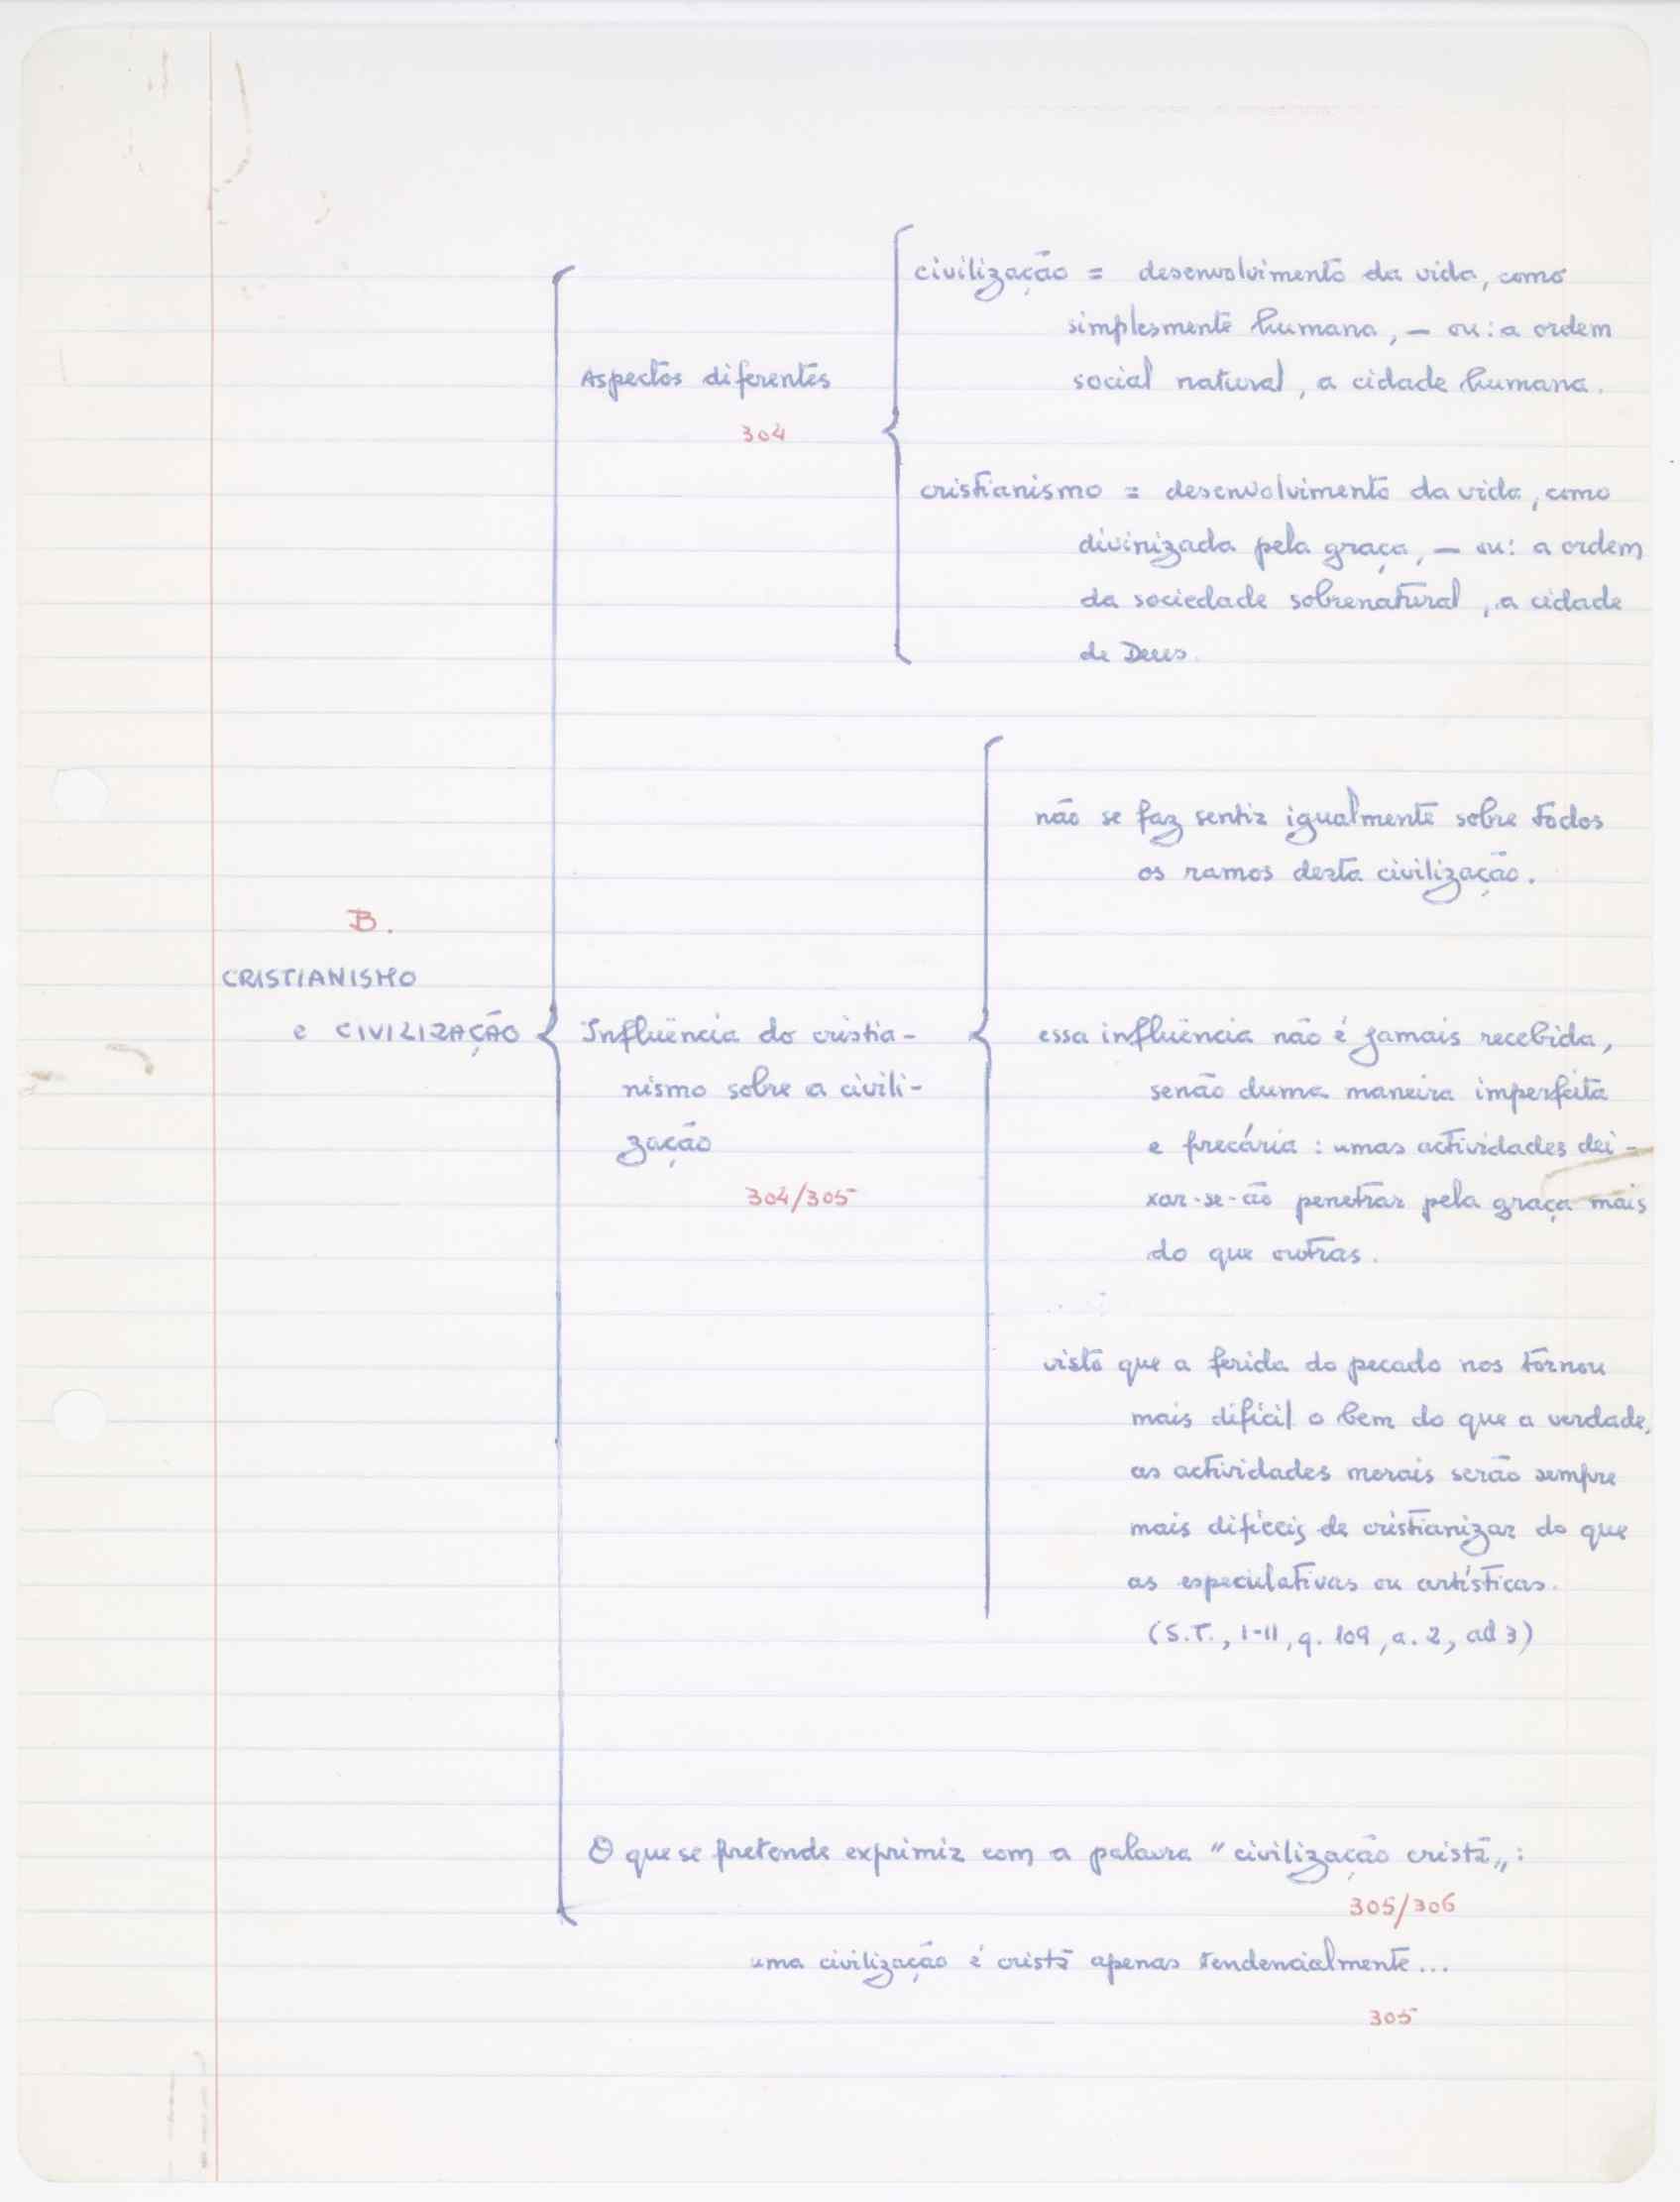 B.
CRISTIANISMO
e CIVILIZAÇÃO
Aspectos diferentes
304
civilização = desenvolvimento da vida, como
simplesmente humana, — ou: a ordem
social natural, a cidade humana.
cristianismo = desenvolvimento da vida, como
divinizada pela graça, — ou: a ordem
da sociedade sobrenatural, a cidade
de Deus.
Influência do cristia-
nismo sobre a civili-
zação
304/305
não se faz sentir igualmente sobre todos
os ramos desta civilização.
essa influência não é jamais recebida,
senão duma maneira imperfeita
e precária : umas actividades dei-
xar-se-ão penetrar pela graça mais
do que outras.
visto que a ferida do pecado nos tornou
mais difícil o bem do que a verdade,
as actividades morais serão sempre
mais difíceis de cristianizar do que
as especulativas ou artísticas.
(S.T., I-II, q. 109, a. 2, ad 3)
O que se pretende exprimir com a palavra "civilização cristã„ :
305/306
uma civilização é cristã apenas tendencialmente...
305